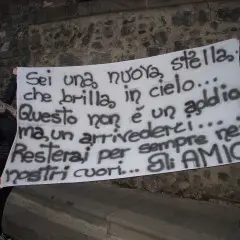 Sei una nuova stella
che brilla in cielo...
Questo non è un addio
ma, un arrivederci...
Resterai per sempre nei
nostri cuori... Gli AMICI